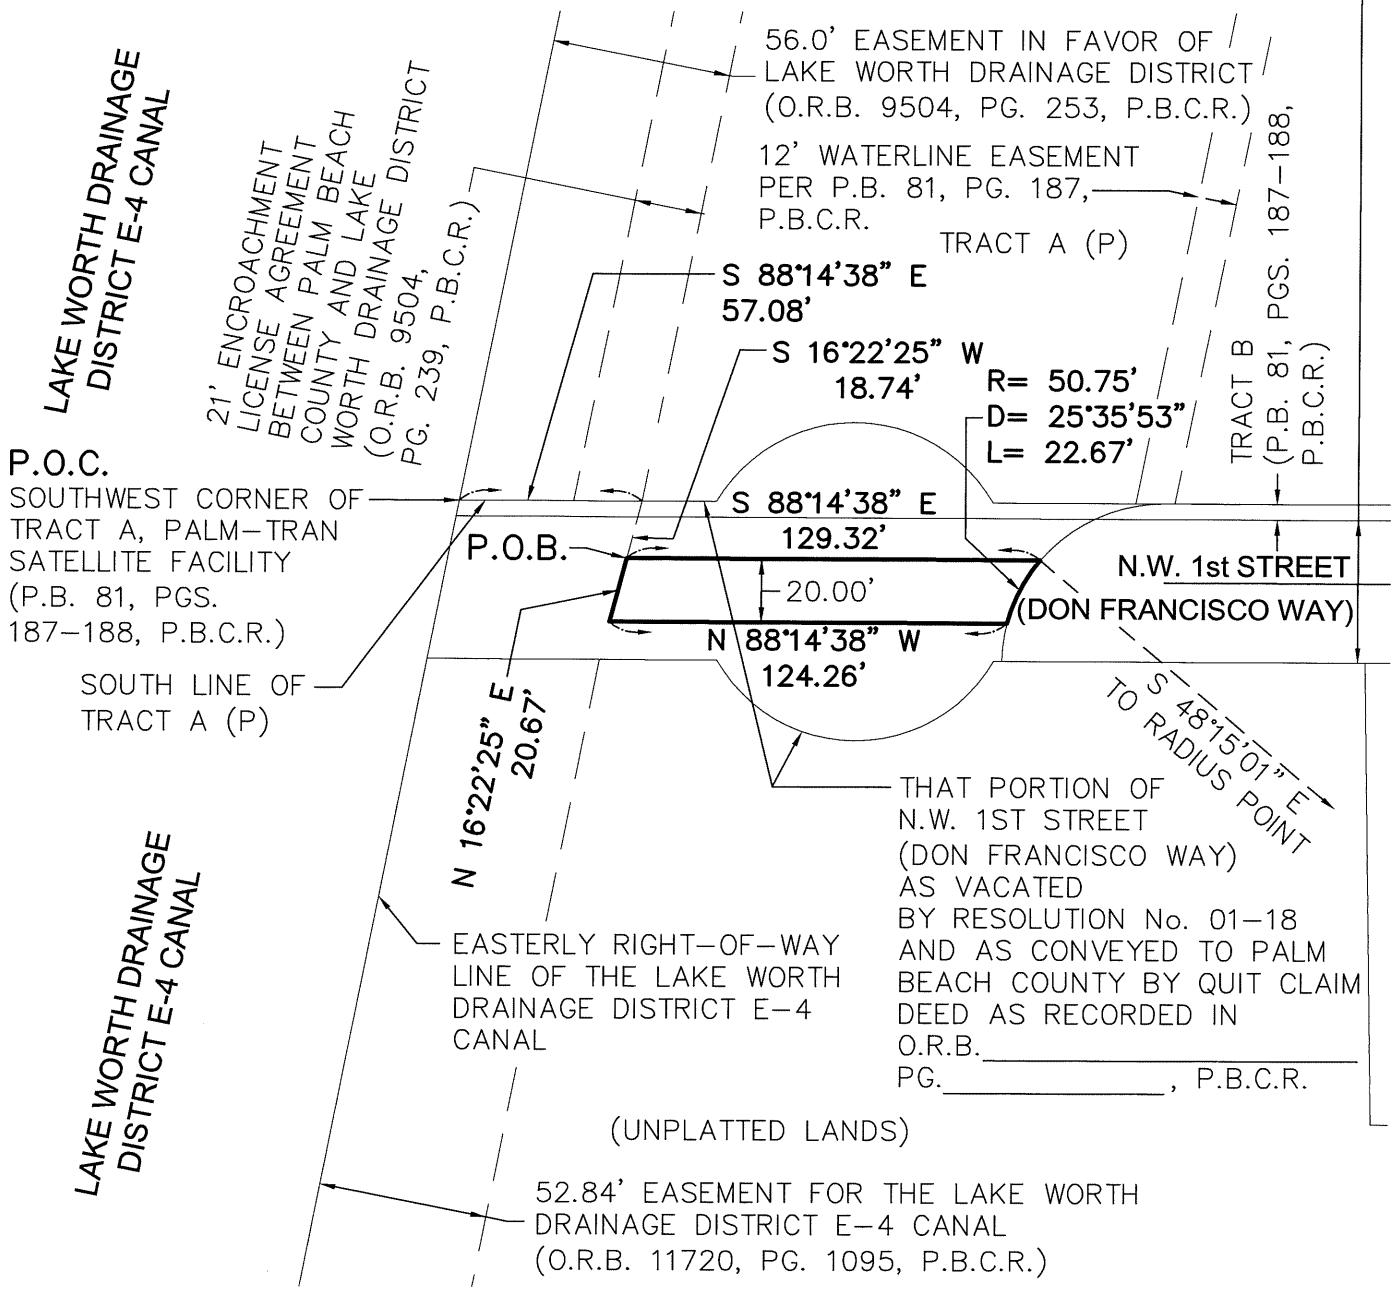 LAKE WORTH DRAINAGE
DISTRICT E-4 CANAL
21' ENCROACHMENT
LICENSE AGREEMENT
BETWEEN PALM BEACH
COUNTY AND LAKE
WORTH DRAINAGE DISTRICT
(O.R.B. 9504,
PG. 239, P.B.C.R.)
56.0' EASEMENT IN FAVOR OF
LAKE WORTH DRAINAGE DISTRICT
(O.R.B. 9504, PG. 253, P.B.C.R.)
12' WATERLINE EASEMENT
PER P.B. 81, PG. 187,
P.B.C.R.
TRACT A (P)
TRACT B
(P.B. 81, PGS. 187-188,
P.B.C.R.)
S 88°14'38" E
57.08'
S 16°22'25" W
18.74'
R= 50.75'
D= 25°35'53"
L= 22.67'
P.O.C.
SOUTHWEST CORNER OF
TRACT A, PALM-TRAN
SATELLITE FACILITY
(P.B. 81, PGS.
187-188, P.B.C.R.)
SOUTH LINE OF
TRACT A (P)
P.O.B.
S 88°14'38" E
129.32'
20.00'
N 88°14'38" W
124.26'
N 16°22'25" E
20.67'
N.W. 1st STREET
(DON FRANCISCO WAY)
S 48°15'01" E
TO RADIUS POINT
THAT PORTION OF
N.W. 1ST STREET
(DON FRANCISCO WAY)
AS VACATED
BY RESOLUTION No. 01-18
AND AS CONVEYED TO PALM
BEACH COUNTY BY QUIT CLAIM
DEED AS RECORDED IN
O.R.B.
PG. , P.B.C.R.
LAKE WORTH DRAINAGE
DISTRICT E-4 CANAL
EASTERLY RIGHT-OF-WAY
LINE OF THE LAKE WORTH
DRAINAGE DISTRICT E-4
CANAL
(UNPLATTED LANDS)
52.84' EASEMENT FOR THE LAKE WORTH
DRAINAGE DISTRICT E-4 CANAL
(O.R.B. 11720, PG. 1095, P.B.C.R.)